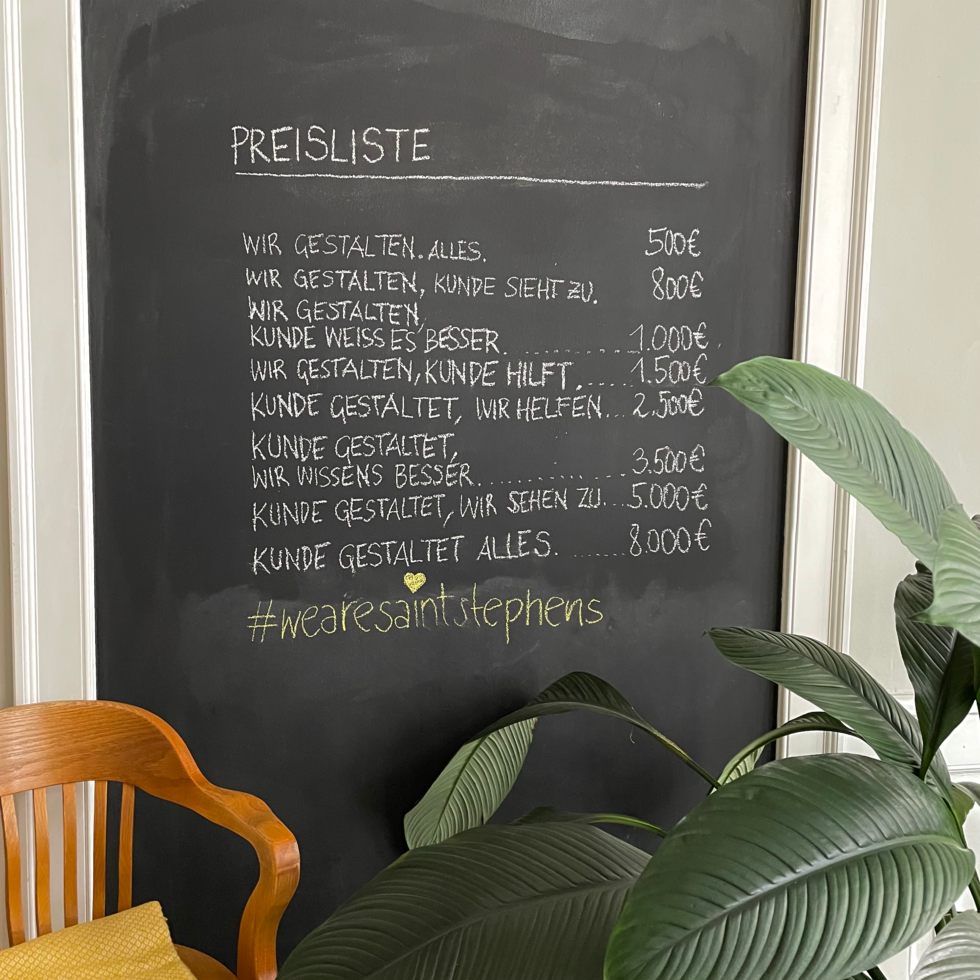 PREISLISTE
WIR GESTALTEN. ALLES. 500€
WIR GESTALTEN, KUNDE SIEHT ZU. 800€
WIR GESTALTEN,
KUNDE WEISS ES BESSER. ........ 1.000€
WIR GESTALTEN, KUNDE HILFT ...... 1.500€
KUNDE GESTALTET, WIR HELFEN... 2.500€
KUNDE GESTALTET,
WIR WISSENS BESSER. ............ 3.500€
KUNDE GESTALTET, WIR SEHEN ZU... 5.000€
KUNDE GESTALTET ALLES. ...... 8.000€
#wearesaintstephens